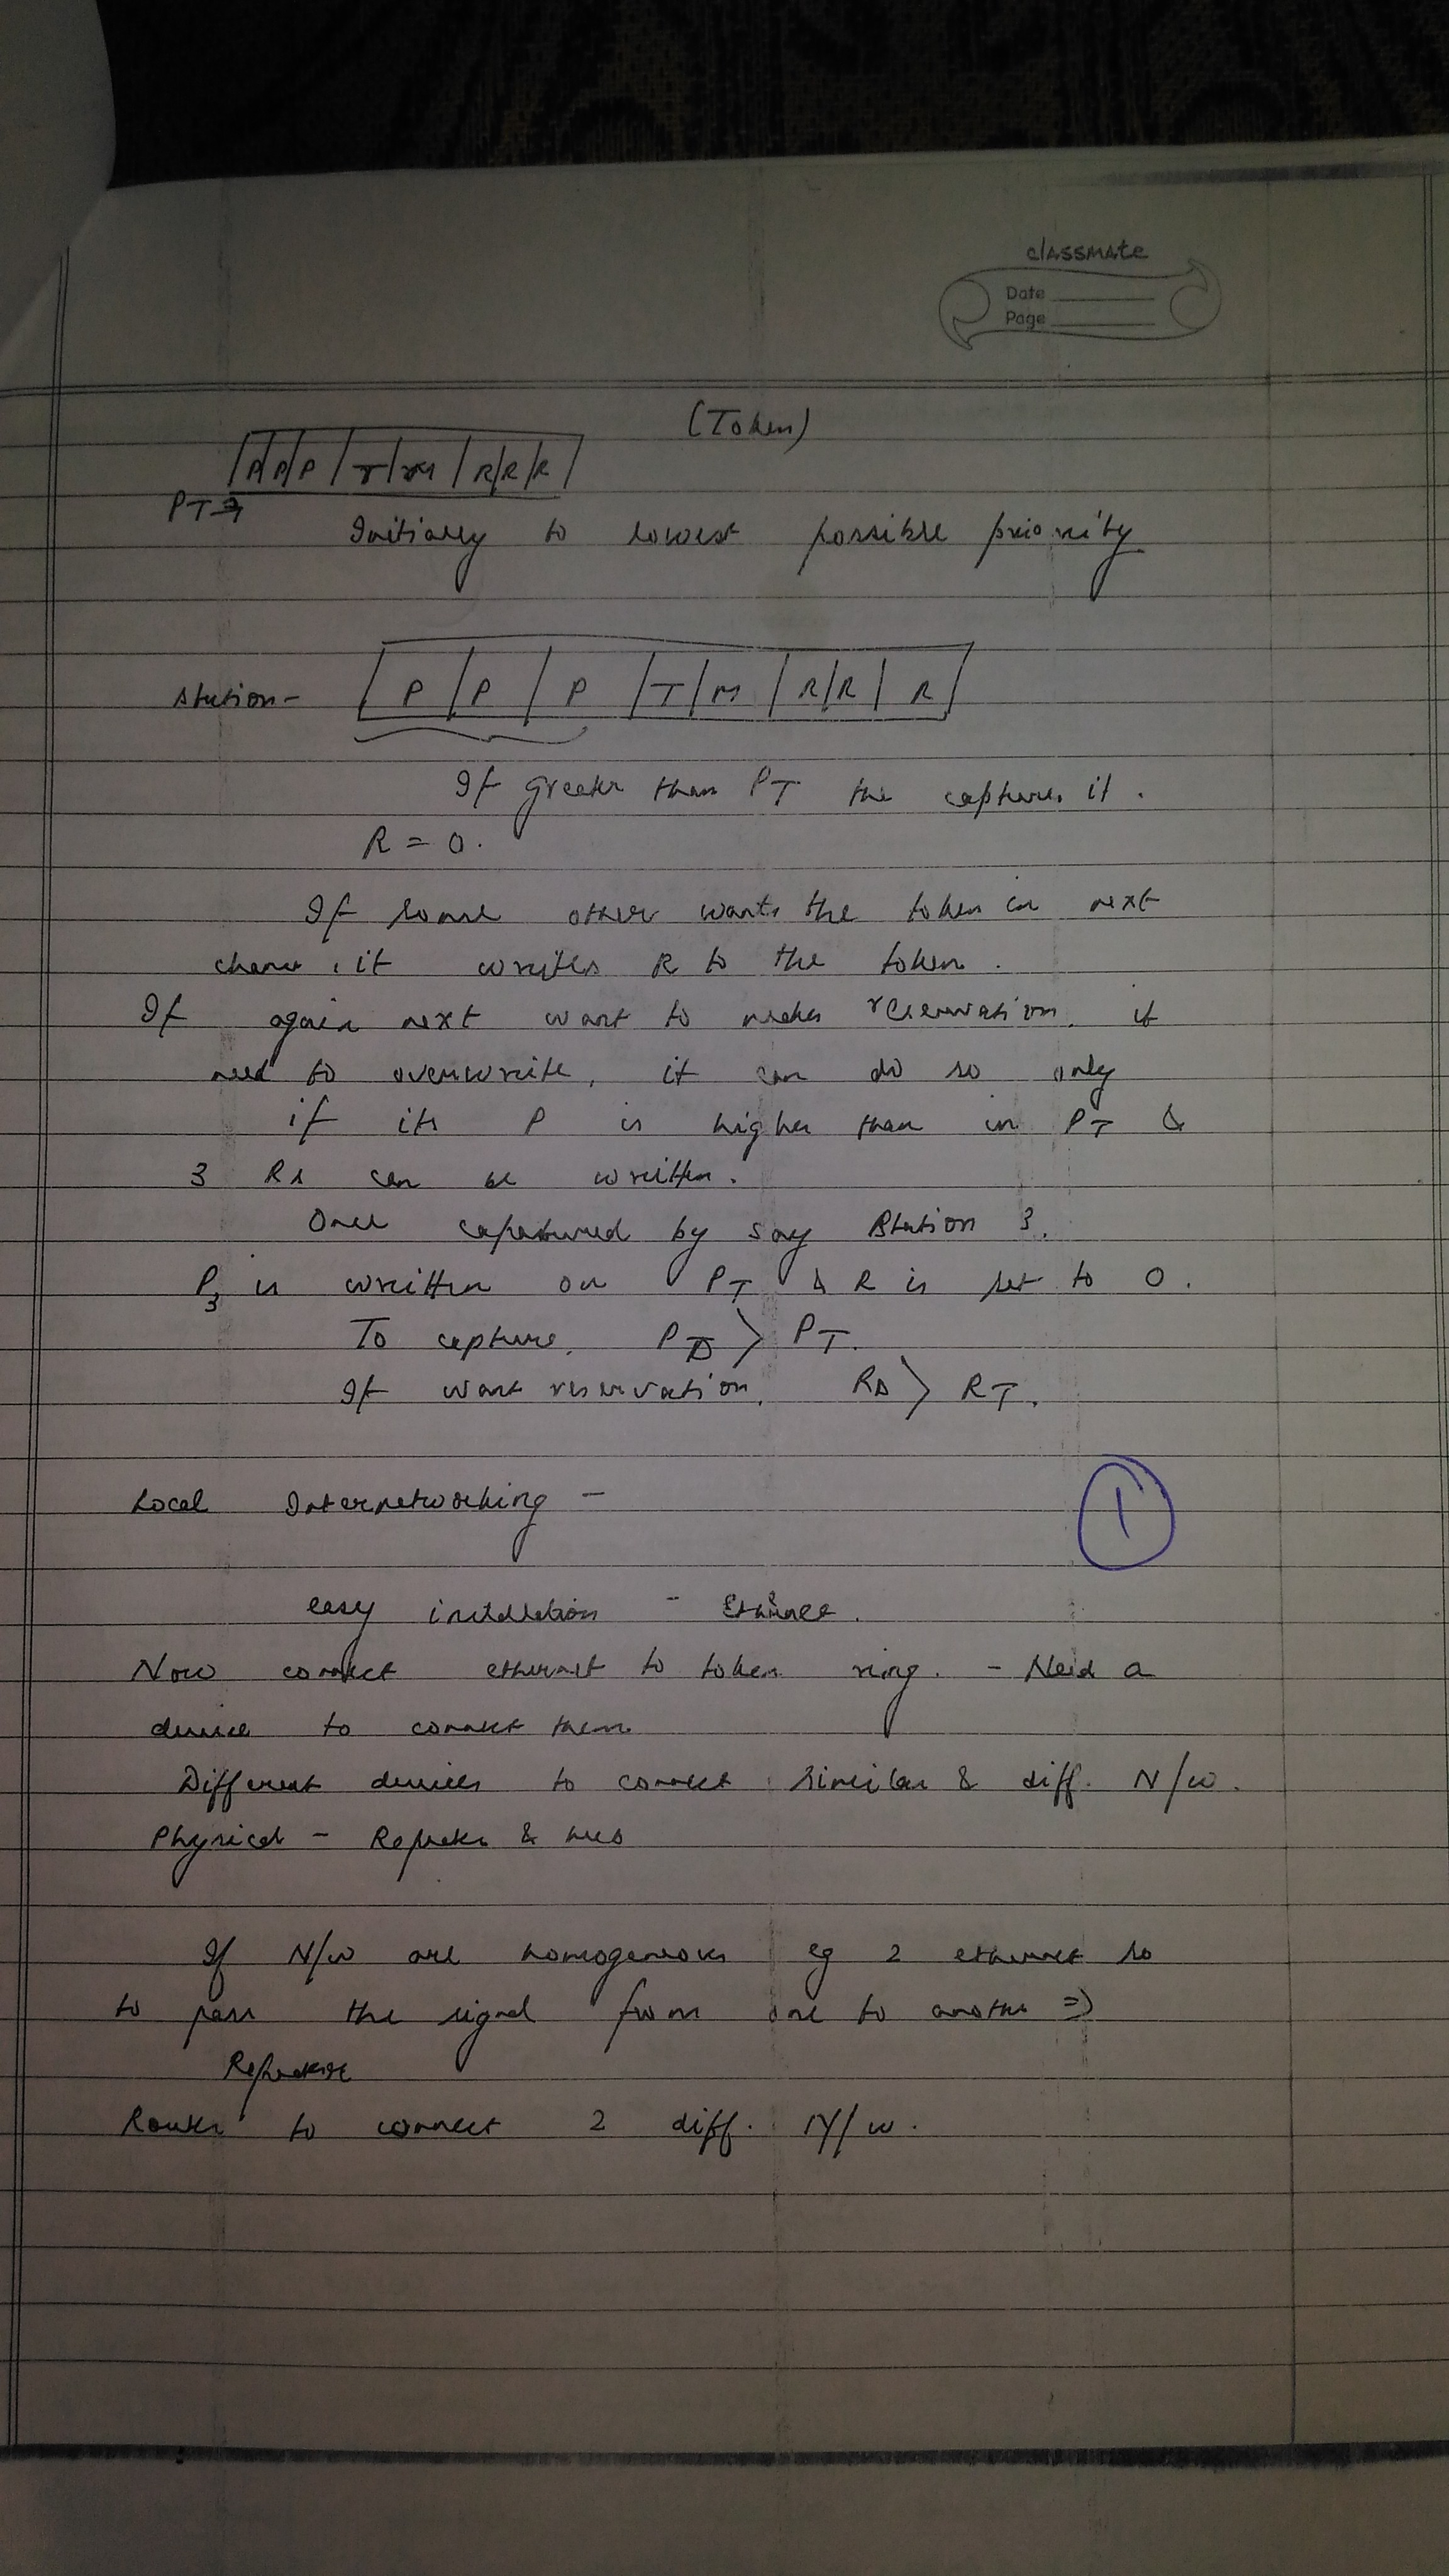 classmate
Date
Page
(Token)
P P P T M R R R
PT→
Initially to lowest possible priority
Station- P P P T M R R R
If greater than PT the captures it.
R = 0.
If some other wants the token in next
chance, it writes R to the token.
If again next want to make reservation, it
need to overwrite, it can do so only
if its P is higher than in PT &
3 Rs can be written.
Once captured by say Station 3,
P3 is written on PT & R is set to 0.
To capture, PS > PT.
If want reservation, RS > RT.
Local Internetworking -
1
easy installation - Ethernet.
Now connect ethernet to token ring. - Need a
device to connect them
Different devices to connect similar & diff. N/w.
Physical - Repeater & hub
If N/w are homogeneous eg 2 ethernet so
to pass the signal from one to another =>
Repeater
Router to connect 2 diff. N/w.